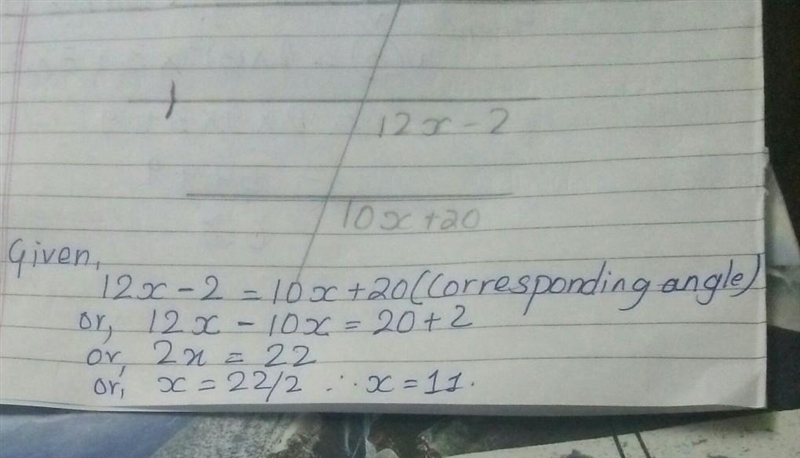 12x - 2
10x + 20
Given,
12x - 2 = 10x + 20 (Corresponding angle)
or, 12x - 10x = 20 + 2
or, 2x = 22
or, x = 22/2 ∴ x = 11.